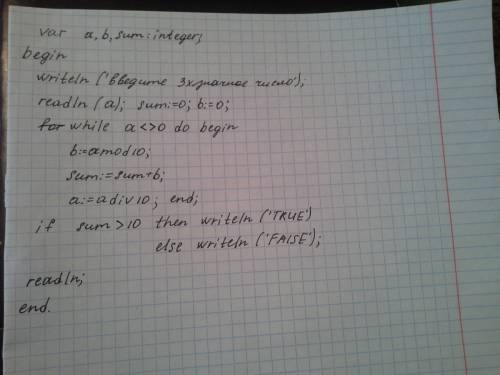 var a, b, sum: integer;
begin
writeln ('введите 3хзначное число');
readln (a); sum:=0; b:=0;
for while a<>0 do begin
b:=a mod 10;
sum:=sum+b;
a:=a div 10; end;
if sum>10 then writeln ('TRUE')
else writeln ('FAlSE');
readln;
end.